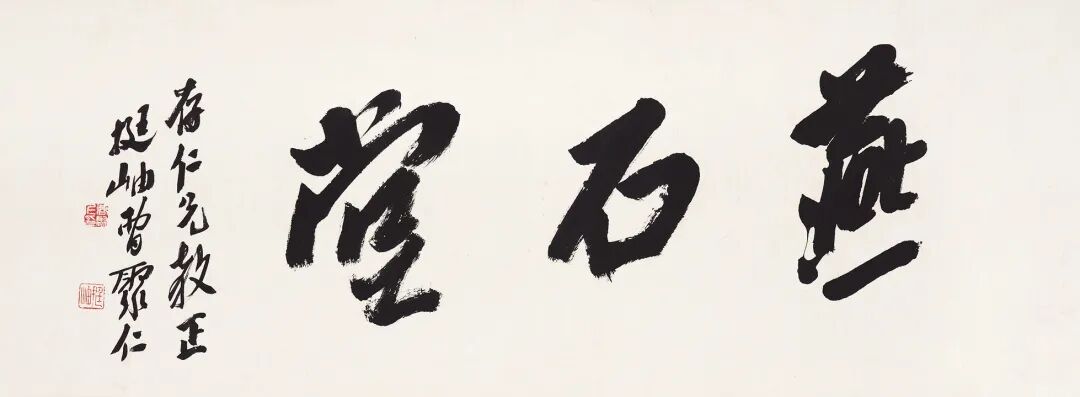 燕石堂
存仁先教正
挺岫仁